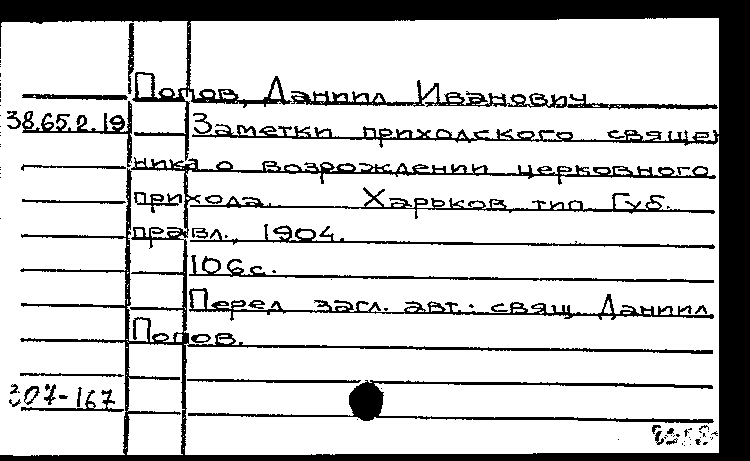 Попов, Даниил Иванович
38.65.2.19 Заметки приходского священ
ника о возрождении церковного
прихода. Харьков, тип Губ.
правл., 1904.
106 с.
Перед загл. авт.: свящ. Даниил
Попов.
307-167